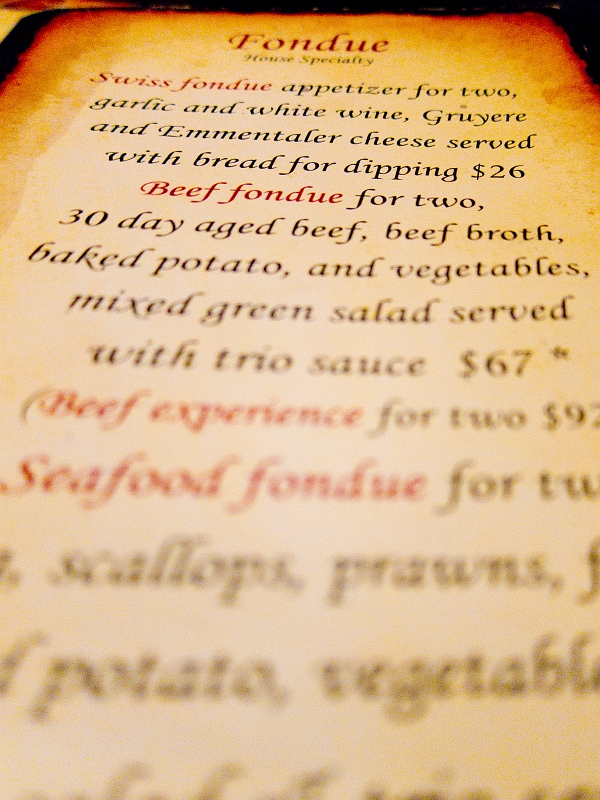 Fondue
House Specialty
Swiss fondue appetizer for two,
garlic and white wine, Gruyere
and Emmentaler cheese served
with bread for dipping $26
Beef fondue for two,
30 day aged beef, beef broth,
baked potato, and vegetables,
mixed green salad served
with trio sauce $67 *
(Beef experience for two $92
Seafood fondue for
scallops, prawns,
potato,